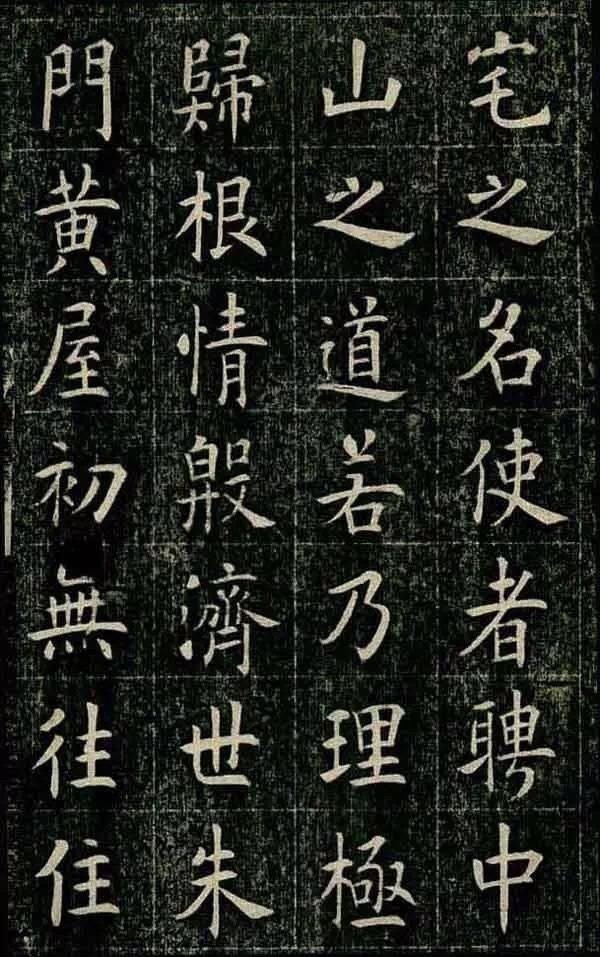 宅之名使者聘中
山之道若乃理極
歸根情殷濟世朱
門黃屋初無往住